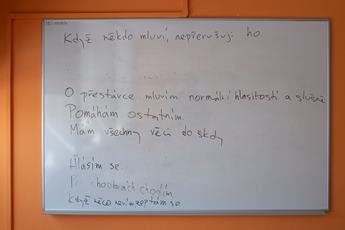 Když někdo mluví, nepřerušuji ho
O přestávce mluvím normální hlasitostí a slušně
Pomáhám ostatním.
Mám všechny věci do školy
Hlásím se
Po chodbách chodím
Když něco nevím zeptám se